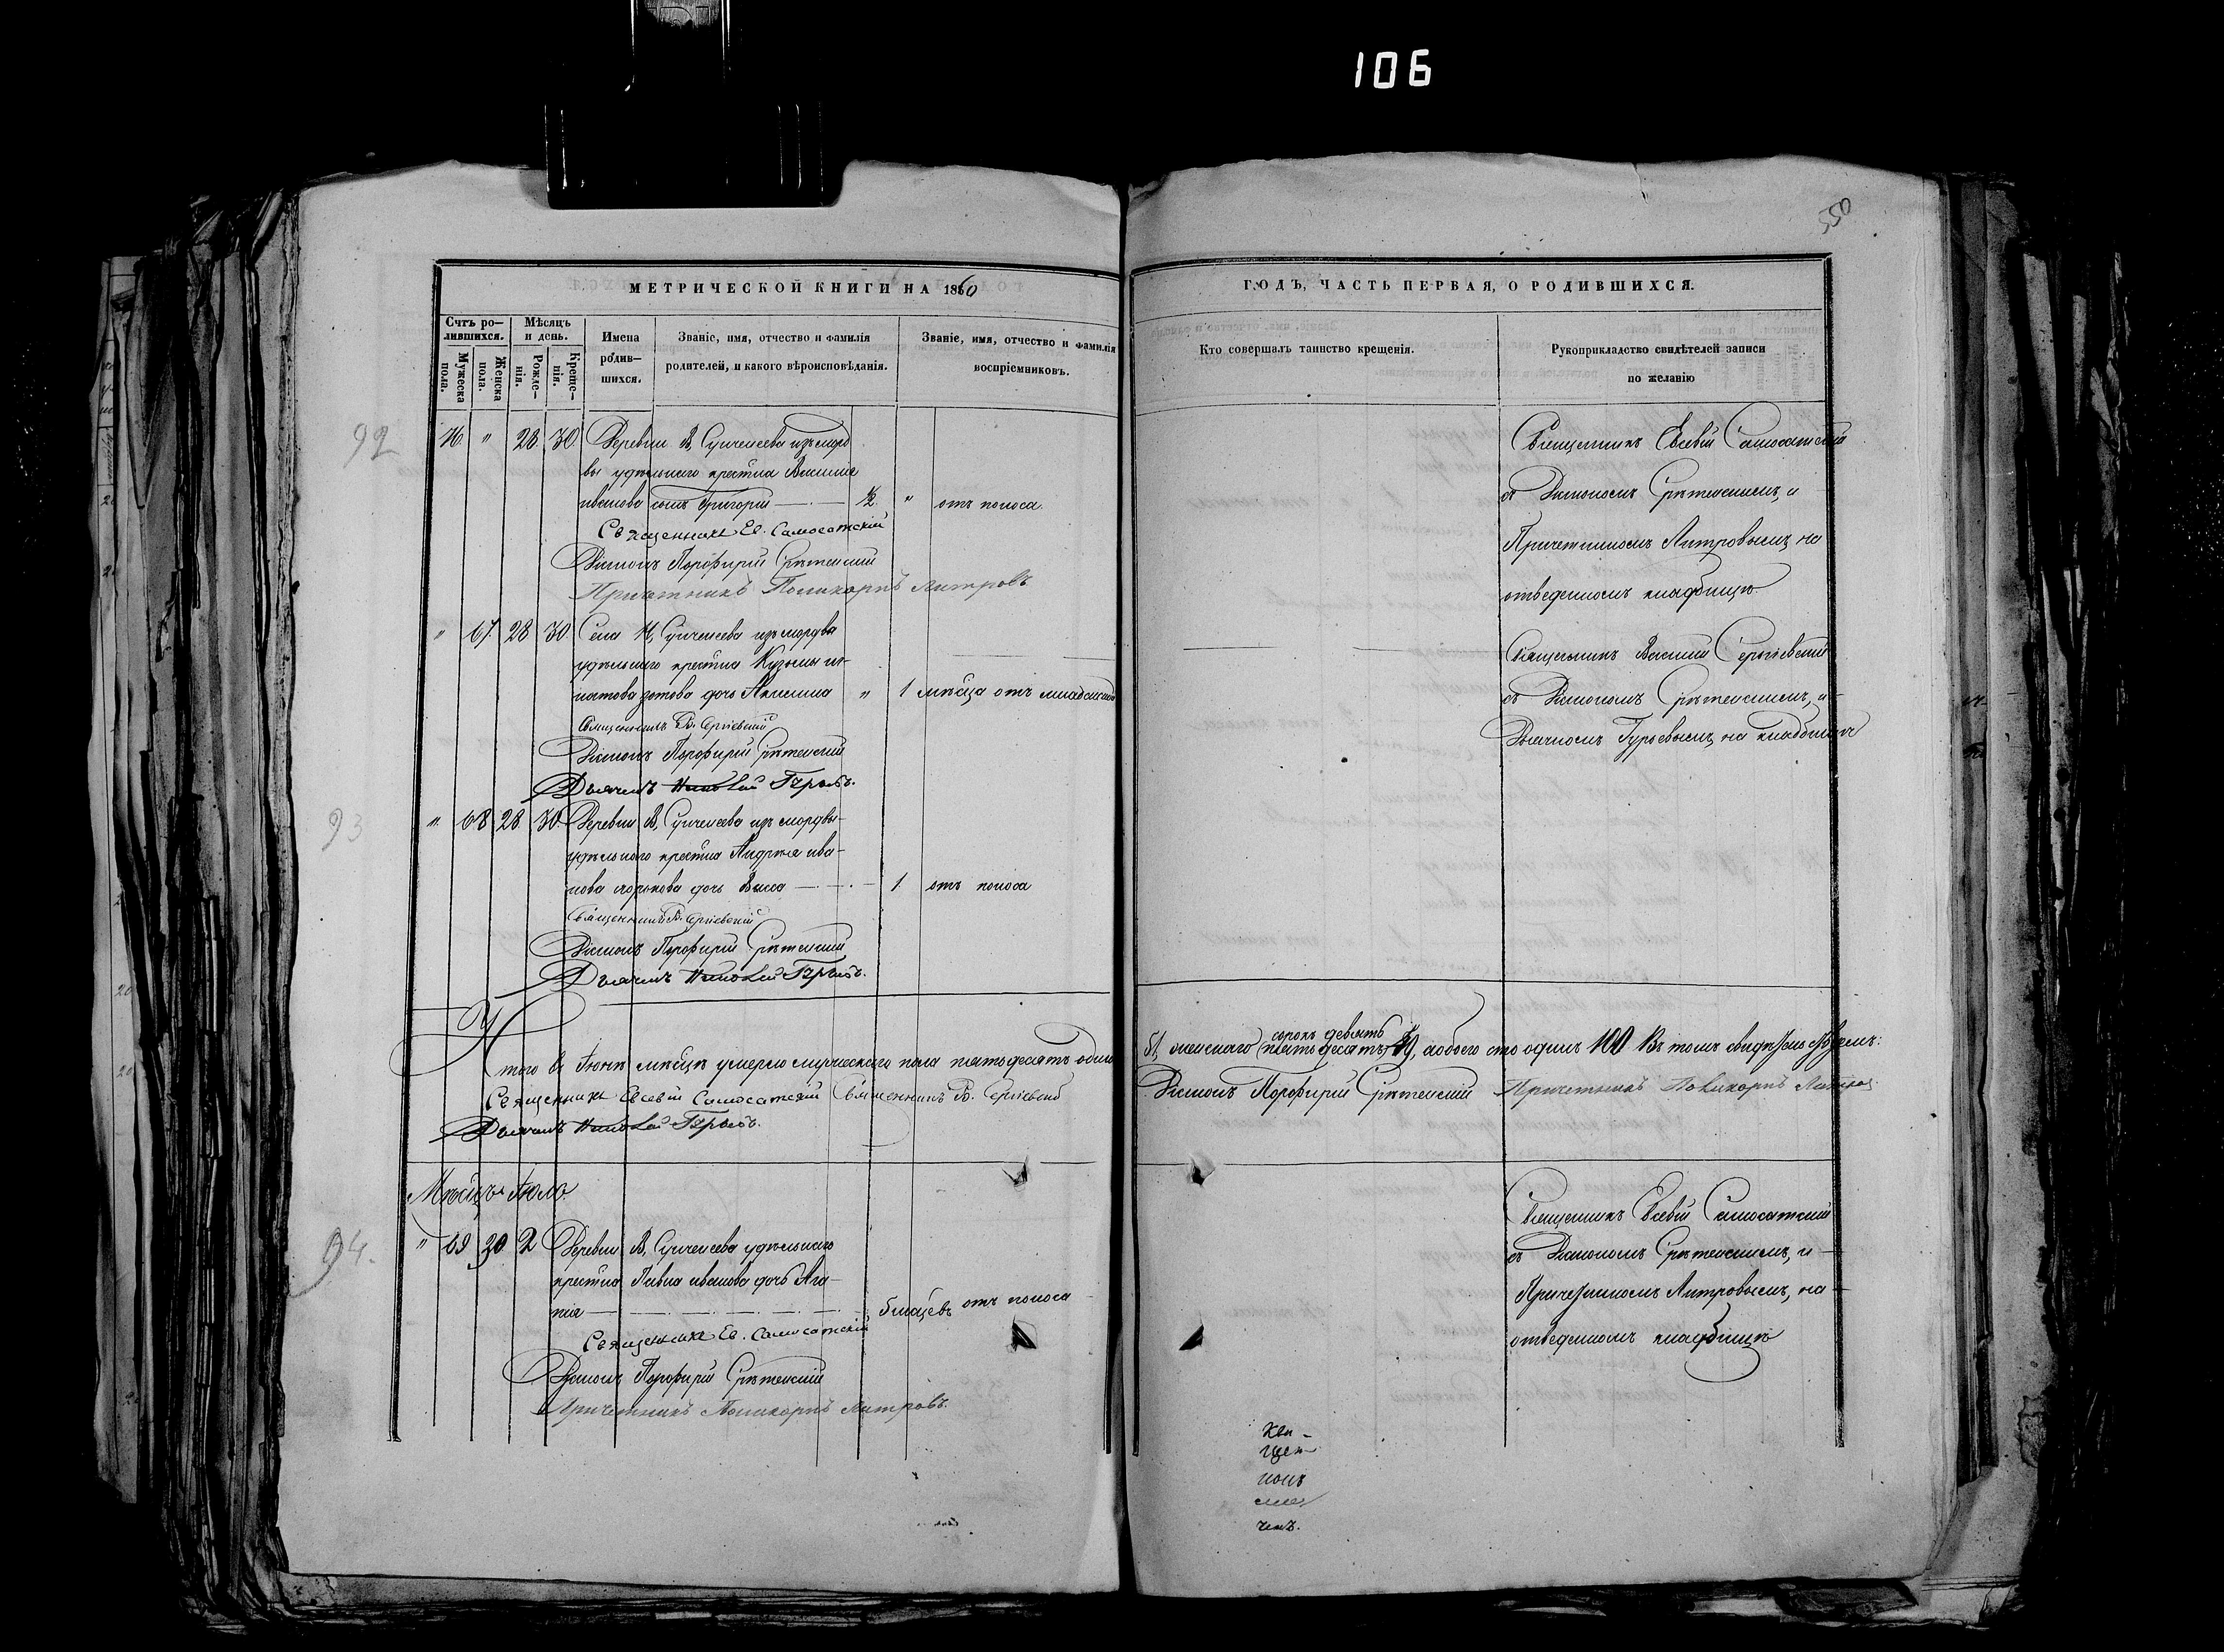 106
550
МЕТРИЧЕСКОЙ КНИГИ НА 1860
ГОДЪ, ЧАСТЬ ПЕРВАЯ, О РОДИВШИХСЯ.
Счтъ ро-
дившихся.
Мужеска пола.
Женска пола.
Мѣсяцъ
и день.
Рожде-
нія.
Креще-
нія.
Имена
родив-
шихся.
Званіе, имя, отчество и фамилія
родителей, и какого вѣроисповѣданія.
Званіе, имя, отчество и фамилія
воспріемниковъ.
Кто совершалъ таинство крещенія.
Рукоприкладство свидѣтелей записи
по желанію
92
" 28 30 Деревни В, Сунчелеева изъ морд
вы удѣльнаго крестна Василия
иванова сынъ Григорий 1/2 " отъ поноса.
Священникъ Ев. Самосатскій
Діаконъ Порфирій Срѣтенскій
Причетникъ Поликарпъ Митровъ
Священникъ Евсевій Самосатскій
съ Діакономъ Срѣтенскимъ, и
Причетникомъ Митровымъ, на
отведенномъ кладбищѣ.
" 67 28 30 Села Н, Сунчелеева изъ мордвы
удѣльнаго крестна Кузьмы иг-
натова зотова дочь Акилина " 1 мѣсяца отъ младенской
Священникъ В. Сергіевскій
Діаконъ Порфирій Срѣтенскій
Дьячекъ Николай Гурьевъ.
Священникъ Василій Сергіевскій
съ Діакономъ Срѣтенскимъ, и
Дьячкомъ Гурьевымъ, на кладбищѣ
93
" 68 28 30 Деревни В, Сунчелеева изъ мордвы
удѣльнаго крестна Андрея ива-
нова дочь Васса 1 отъ поноса
Священникъ В. Сергіевскій
Діаконъ Порфирій Срѣтенскій
Дьячекъ Николай Гурьевъ.
Итого въ Іюнѣ мѣсяцѣ умерло мужескаго пола пятьдесятъ одинъ
51, женскаго сорокъ девять 49, а обоего сто 100 Въ томъ свидѣтельствуемъ:
Священникъ Евсевій Самосатскій Священникъ В. Сергіевскій
Діаконъ Порфирій Срѣтенскій Причетникъ Поликарпъ Митровъ
Дьячекъ Николай Гурьевъ.
Мѣсяцъ Іюль
94.
" 69 30 2 Деревни В, Сунчелеева удѣльнаго
крестна Павла иванова дочь Ага-
пія 6 мѣсцевъ отъ поноса
Священникъ Ев. Самосатскій
Діаконъ Порфирій Срѣтенскій
Причетникъ Поликарпъ Митровъ.
Священникъ Евсевій Самосатскій
съ Діакономъ Срѣтенскимъ, и
Причетникомъ Митровымъ, на
отведенномъ кладбищѣ
щен-